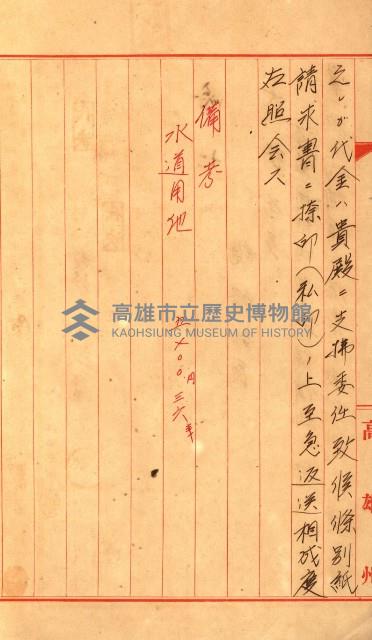 之レガ代金ハ貴殿ニ支拂委任致候條別紙
請求書ニ捺印(私印)ノ上至急返送相成度
右照会ス
備考
水道用地
高雄市立歷史博物館
KAOHSIUNG MUSEUM OF HISTORY
高雄州